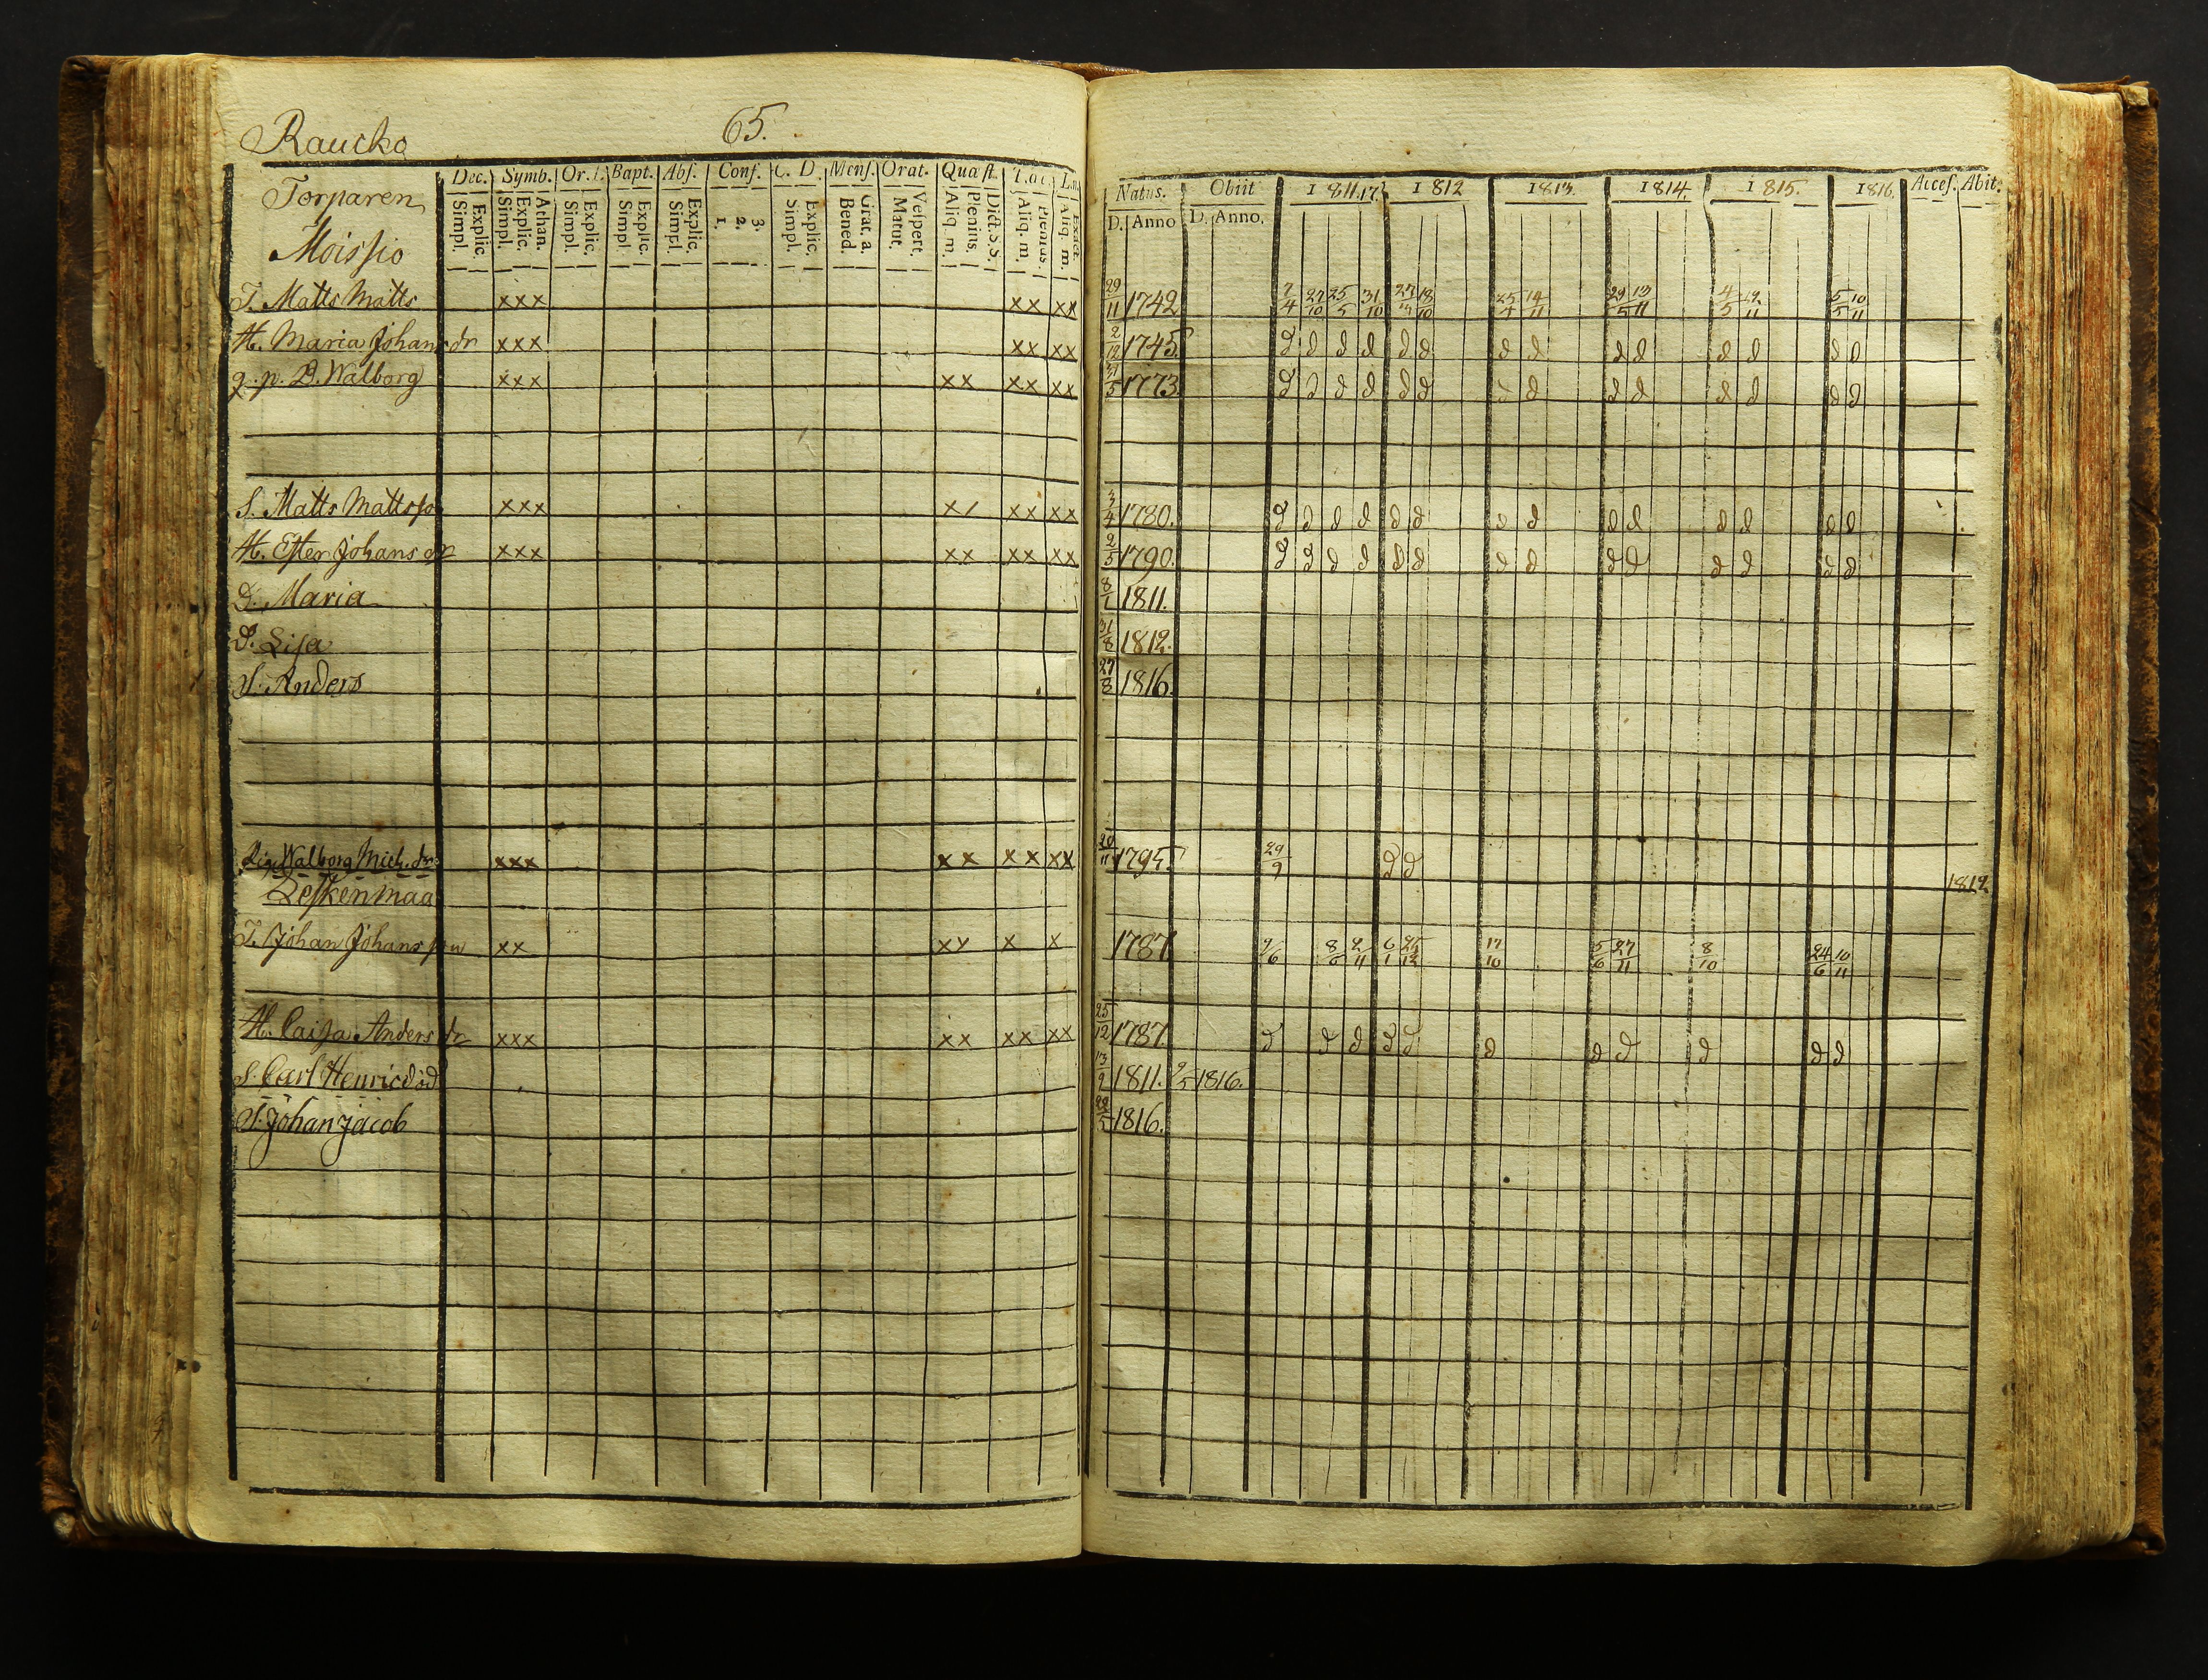 Raucko 65.
Dec. Symb. Or. Bapt. Abs. Conf. C. D. Mens. Orat. Quæst. T. ac.
Explic. Simpl. Athan. Explic. Simpl. Explic. Simpl. Explic. Simpl. Explic. Simpl. 3. 2. 1. Explic. Simpl. Grat. a. Bened. Vespert. Matut. Dict. S. S. Plenius. Aliq. m. Plenius. Aliq. m. Exacte. Aliq. m.
Natus. Obiit 1811,17. 1812 1813. 1814. 1815. 1816. Acces. Abit.
D. Anno D. Anno.
Torparen
Moissio
T. Matts Matts xxx xx xx 29/11 1742 7/4 27/10 25/5 31/10 18/10 25/4 14/11 29/5 13/11 4/5 12/11 5/5 10/11
H. Maria Johans dr xxx xx xx 2/12 1745. d d d d d d d d d d d d d d
q. p. D. Walborg xxx xx xx xx 1773. d d d d d d d d d d d d d d
S. Matts Mattsso xxx x/ xx xx 3/4 1780. d d d d d d d d d d d d d d
H. Ester Johans dr xxx xx xx xx 2/5 1790. d d d d d d d d d d d d d d
D. Maria 8/1 1811.
D. Lisa 31/8 1812.
S. Anders 27/8 1816.
Pig. Walborg Mich. dr xxx xx xx xx 20/11 1795. 29/9 d d 1812
Leskenmaa
T. Johan Johansson xx xx x x 1787 9/6 8/6 2/11 6/1 25/12 17/10 5/6 27/11 8/10 24/6 10/11
H. Caisa Anders dr xxx xx xx xx 25/12 1787. d d d d d d d d d d d
S. Carl Henric död 13/9 1811. 9/5 1816.
S. Johan Jacob 22/5 1816.